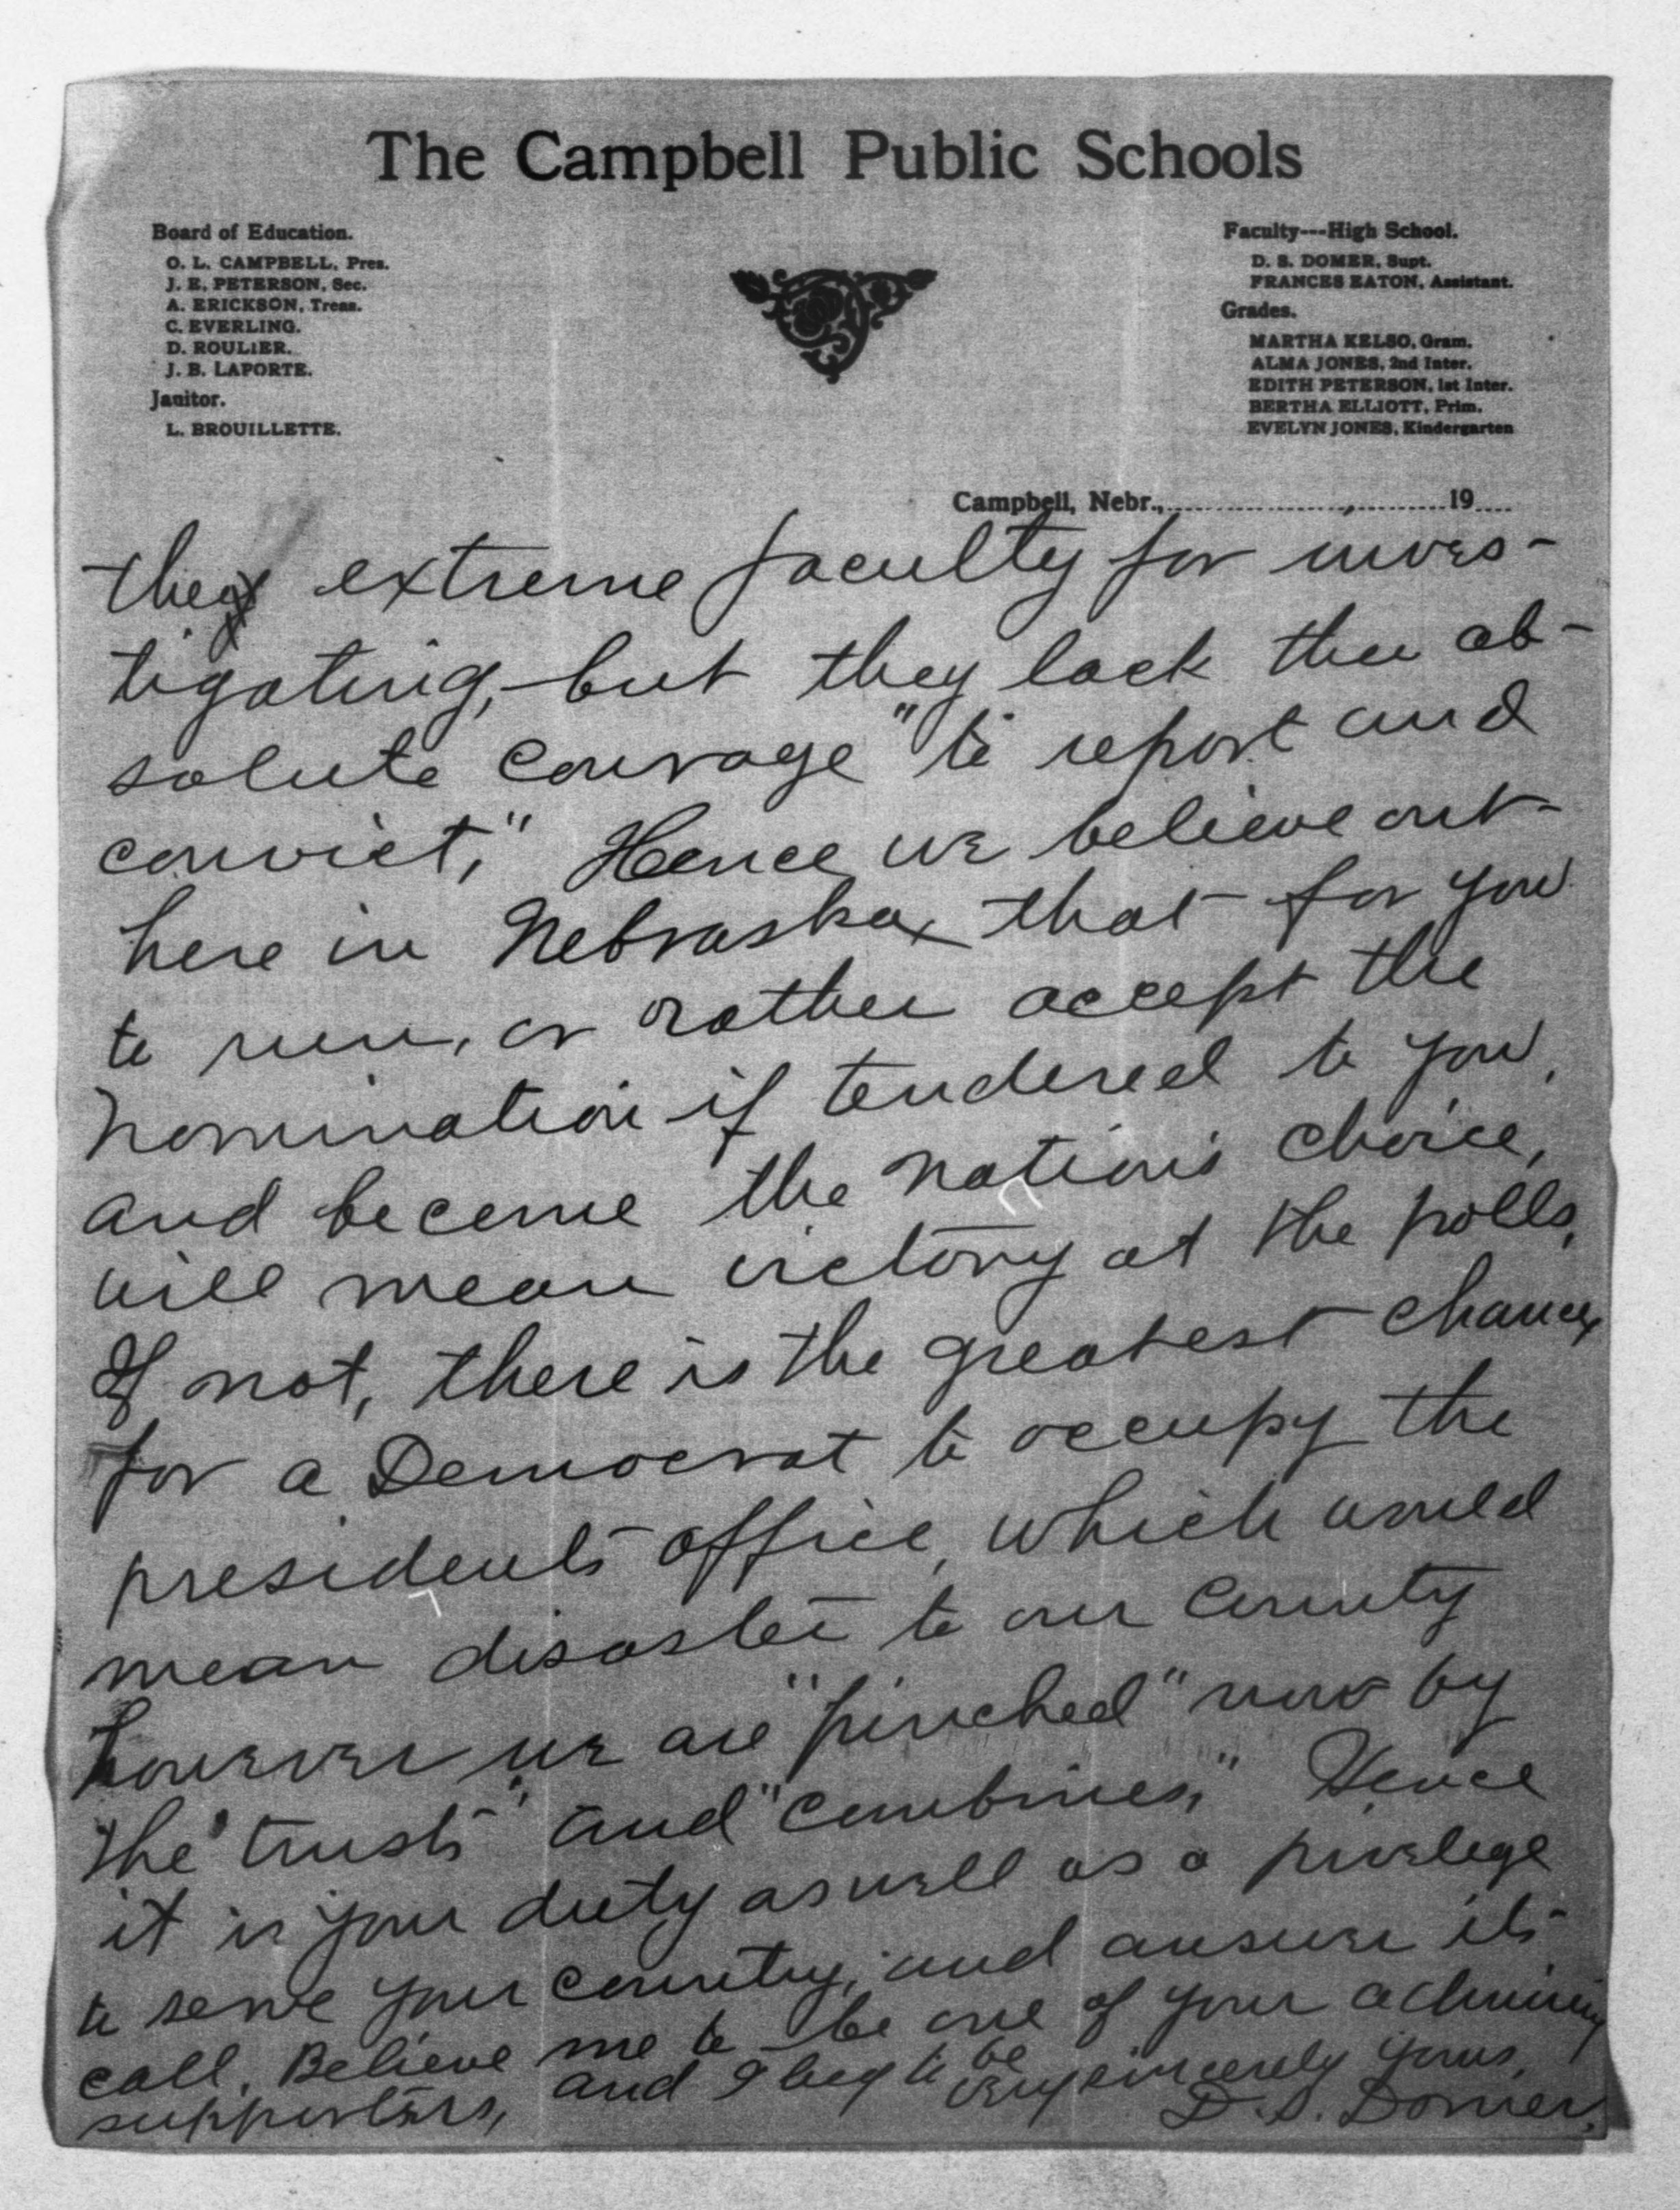 The Campbell Public Schools
Board of Education.
O. L. CAMPBELL, Pres.
J. E. PETERSON, Sec.
A. ERICKSON, Treas.
C. EVERLING.
D. ROULIER.
J. B. LAPORTE.
Janitor.
L. BROUILLETTE.
Faculty---High School.
D. S. DOMER, Supt.
FRANCES EATON, Assistant.
Grades.
MARTHA KELSO, Gram.
ALMA JONES, 2nd Inter.
EDITH PETERSON, 1st Inter.
BERTHA ELLIOTT, Prim.
EVELYN JONES, Kindergarten
Campbell, Nebr.,....................,..........19....
the extreme faculty for inves-
tigating, but they lack the ab-
solute courage "to report and
convict," Hence we believe out
here in Nebraska that for you
to run, or rather accept the
nomination if tendered to you,
and become the nation's choice,
will mean victory at the polls,
If not, there is the greatest chance
for a Democrat to occupy the
presidents office, which would
mean disaster to our country
however we are "pinched" now by
the "trusts" and "combines," Hence
it is your duty as well as a privelege
to serve your country, and answer its
call. Believe me to be one of your admiring
supporters, and I beg to be very sincerely yours,
D. S. Domer.